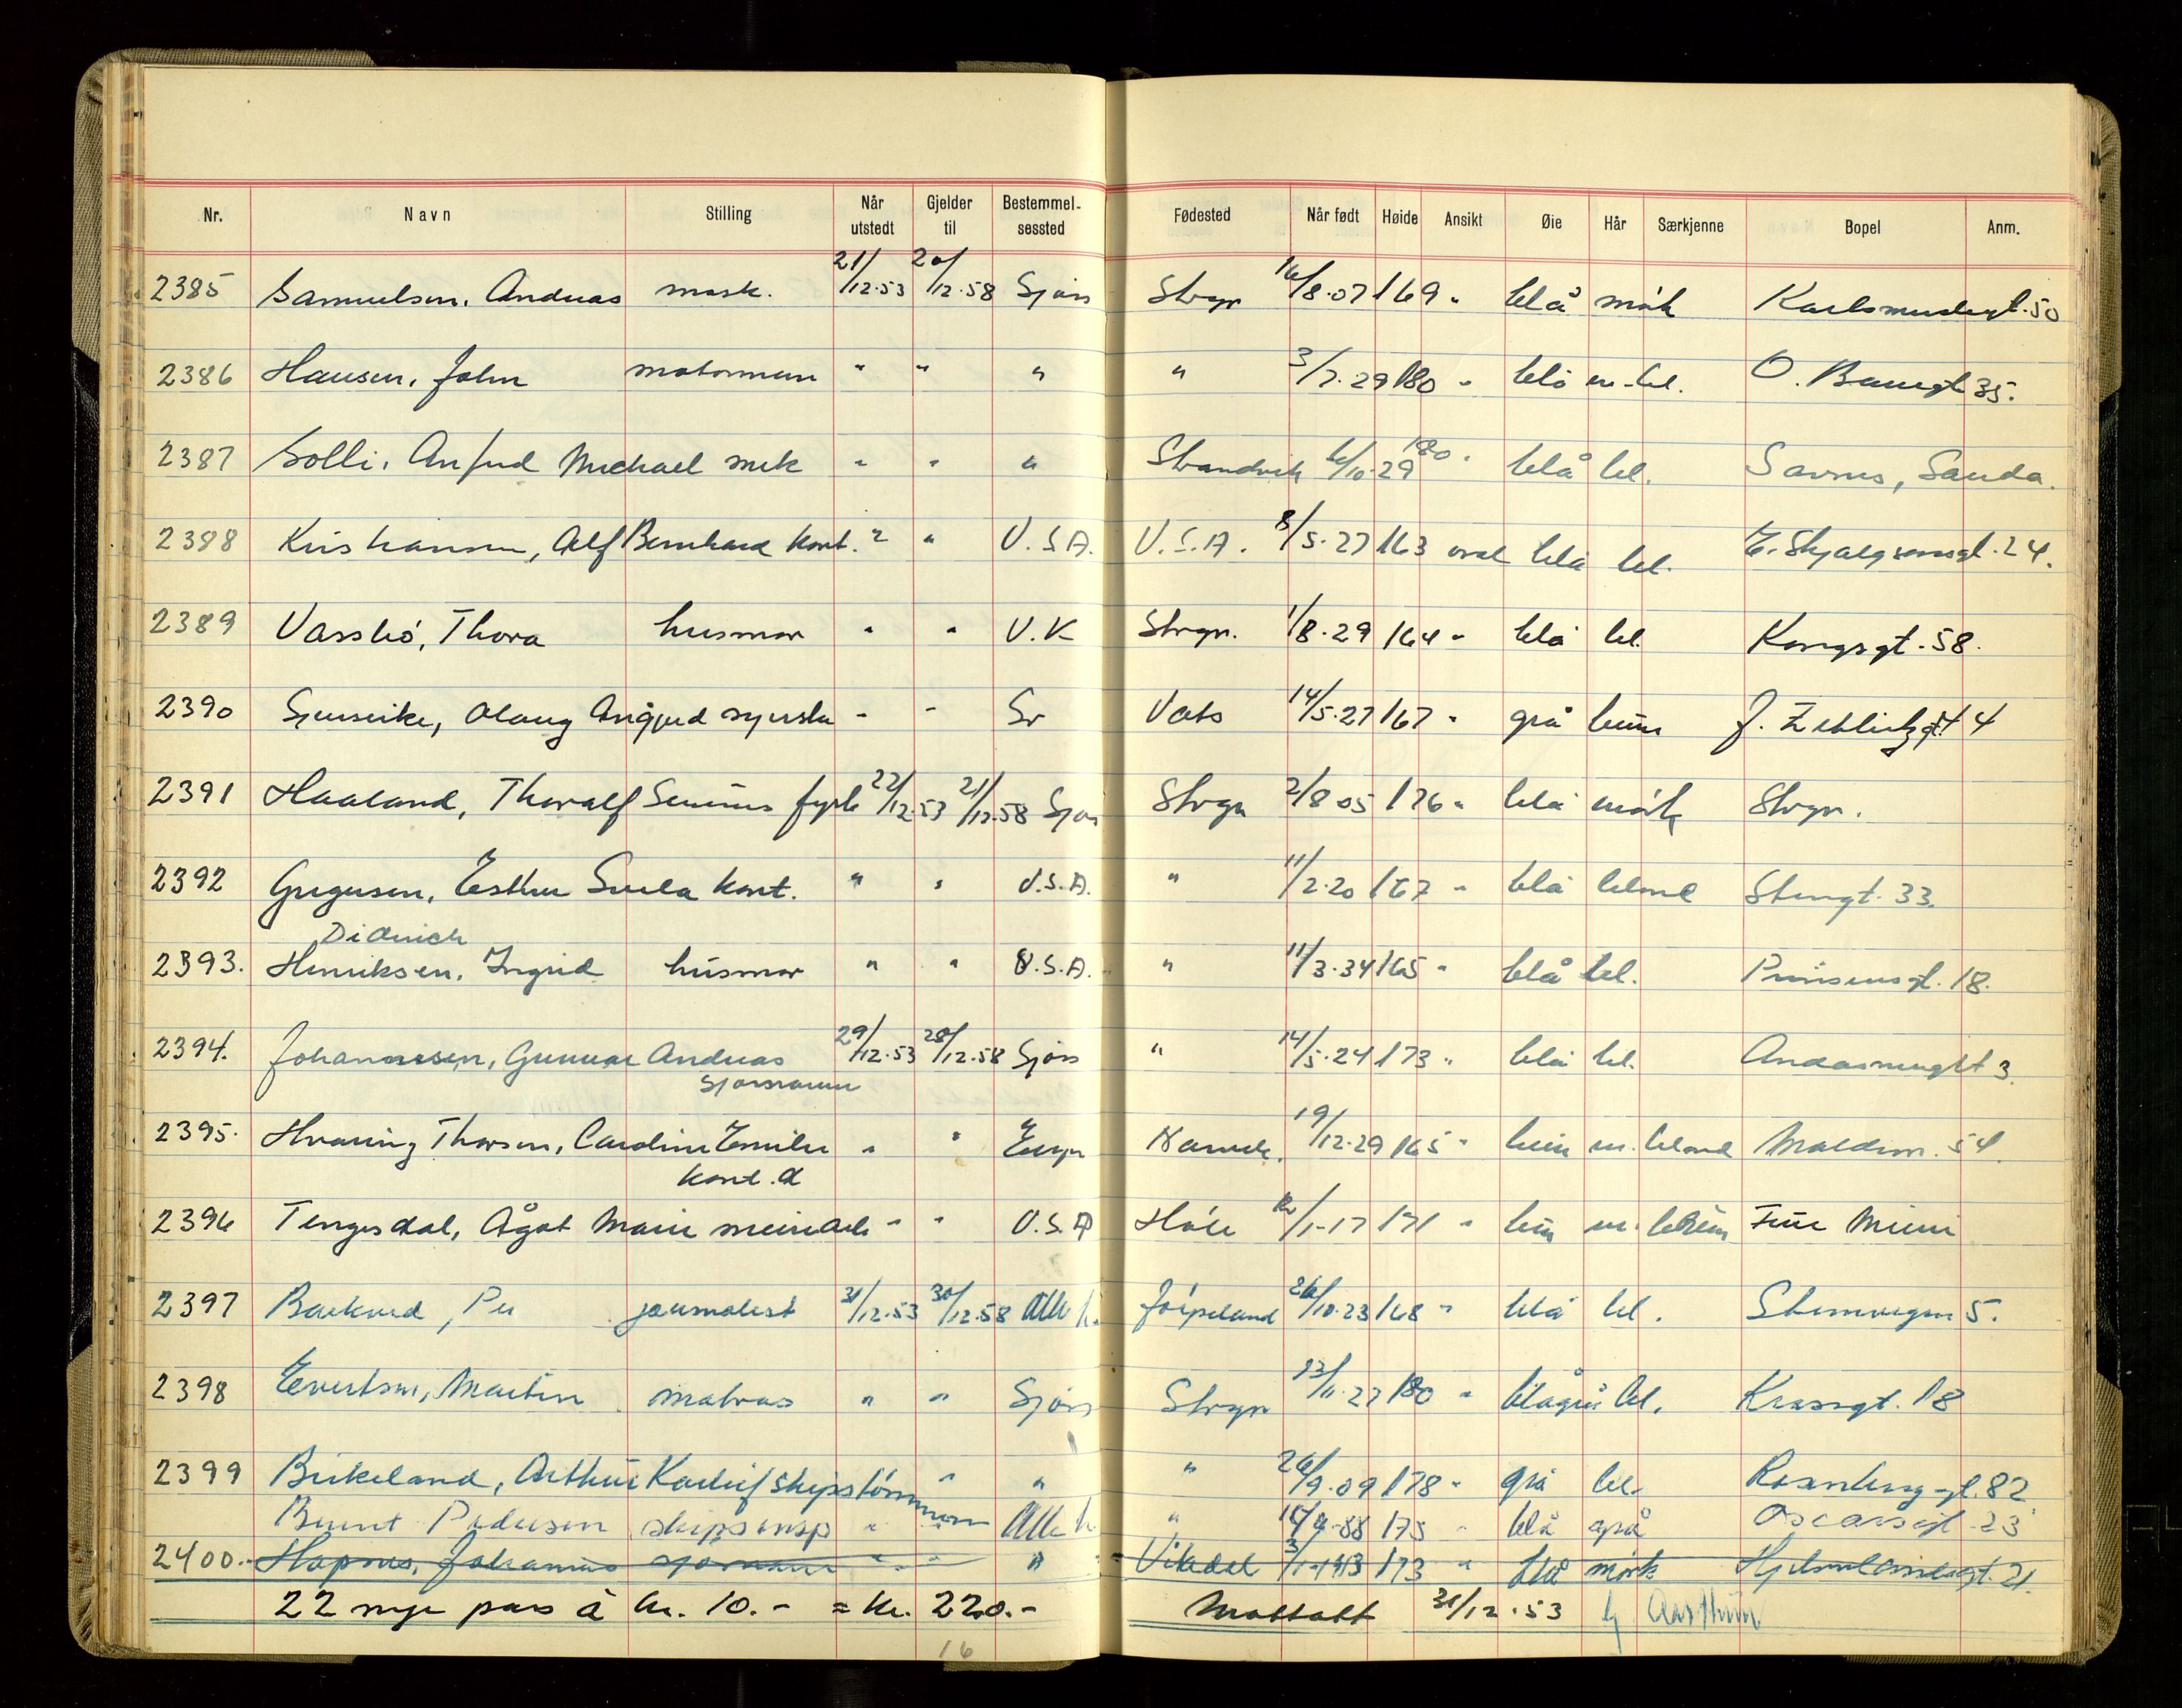 Nr. Navn Stilling Når utstedt Gjelder til Bestemmel-sessted Fødested Når født Høide Ansikt Øie Hår Særkjenne Bopel Anm.
2385 Samuelsen, Andreas mask. 21/12.53 20/12.58 Sjøm Stvgr 16/8.07 169 " blå mørk 50
2386 Hansen, John motormann " " " " 3/7.29 180 " blå m.bl. O. 35.
2387 Solli, Michael mek " " " Strandvik 6/10.29 180 " blå bl. Sauda.
2388 Kristiansen, Alf Bernhard kont. " " U.S.A. U.S.A. 8/5.27 163 oval blå bl. E. Skjalgsonsgt. 24.
2389 Vassbø, Thora husmor " " U.K Stvgr. 1/8.29 164 " blå bl. Kongsgt. 58.
2390 Olaug " " Sv Vats 14/5.27 167 " grå brun J. Zetlitzgt 4
2391 Haaland, Thoralf 22/12.53 21/12.58 Sjøm Stvgr 2/8 05 176 " blå mørk Stvgr.
2392 Gregersen, Esther kont. " " U.S.A. " 11/2.20 167 " blå blond Stengt. 33.
Didrich
2393. Henriksen, Ingrid husmor " " U.S.A. " 11/3.34 165 " blå bl. Prinsensgt. 18.
2394. Johannessen, Gunnar Andreas 29/12.53 28/12.58 Sjøm " 14/5.24 173 " blå bl. 3.
sjømann
2395. Thorsen, Caroline Emilie " " Eur 19/12.29 165 " brun m. blond 54.
kont.d
2396 Tengesdal, Ågot Marie " " U.S.A Høle 12/1-17 171 " brun m. Fine
2397 Per journalist 31/12.53 30/12.58 Alle l. Jørpeland 26/10.23 168 " blå bl. 5.
2398 Evertsen, Martin matros " " Sjøm Stvgr 23/11.27 180 " blågrå bl. 18
2399 Birkeland, Arthur skipstømmerm " " " 26/9.09 178 " grå bl. Rosenberggt. 82
Bernt Pedersen skipsinsp " " Alle l. " 15/9-88 175 " blå grå Oscarsgt 23
2400. Johannes sjømann " " " 3/1-1913 173 " blå mørk Hjelmelandsgt. 21.
22 nye pass à kr. 10.- = kr. 220.- Mottatt 31/12.53
16